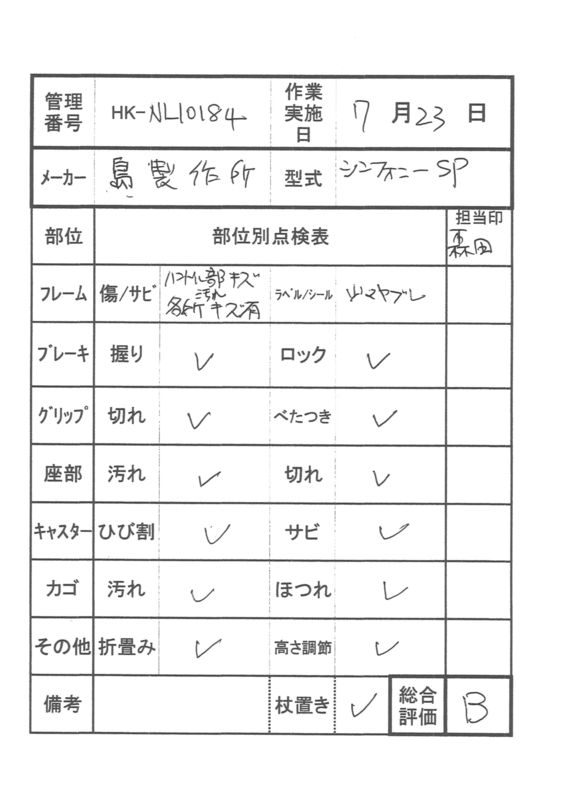 管理番号 HK-NL10184 作業実施日 7月23日
メーカー 島製作所 型式 シンフォニーSP
部位 部位別点検表 担当印
フレーム 傷/サビ ハンドル部キズ 汚れ 各所キズ有 ラベル/シール ヤブレ 森田
ブレーキ 握り ✓ ロック ✓
グリップ 切れ ✓ べたつき ✓
座部 汚れ ✓ 切れ ✓
キャスター ひび割 ✓ サビ ✓
カゴ 汚れ ✓ ほつれ ✓
その他 折畳み ✓ 高さ調節 ✓
備考 杖置き ✓ 総合評価 B